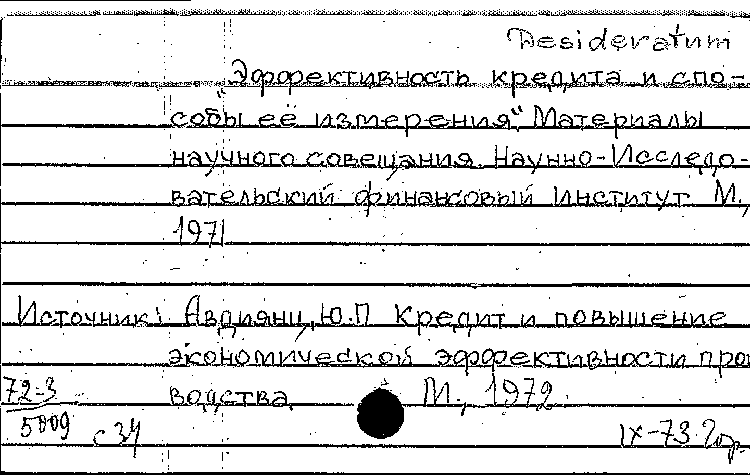 Desideratum
"Эффективность кредита и спо-
собы её измерения". Материалы
научного совещания. Научно-Исследо-
вательский финансовый Институт. М.,
1971
Источник: Авдиянц, Ю.П. Кредит и повышение
экономической эффективности прои
водства. М., 1972
72-3
5009
с 34
IX-73.